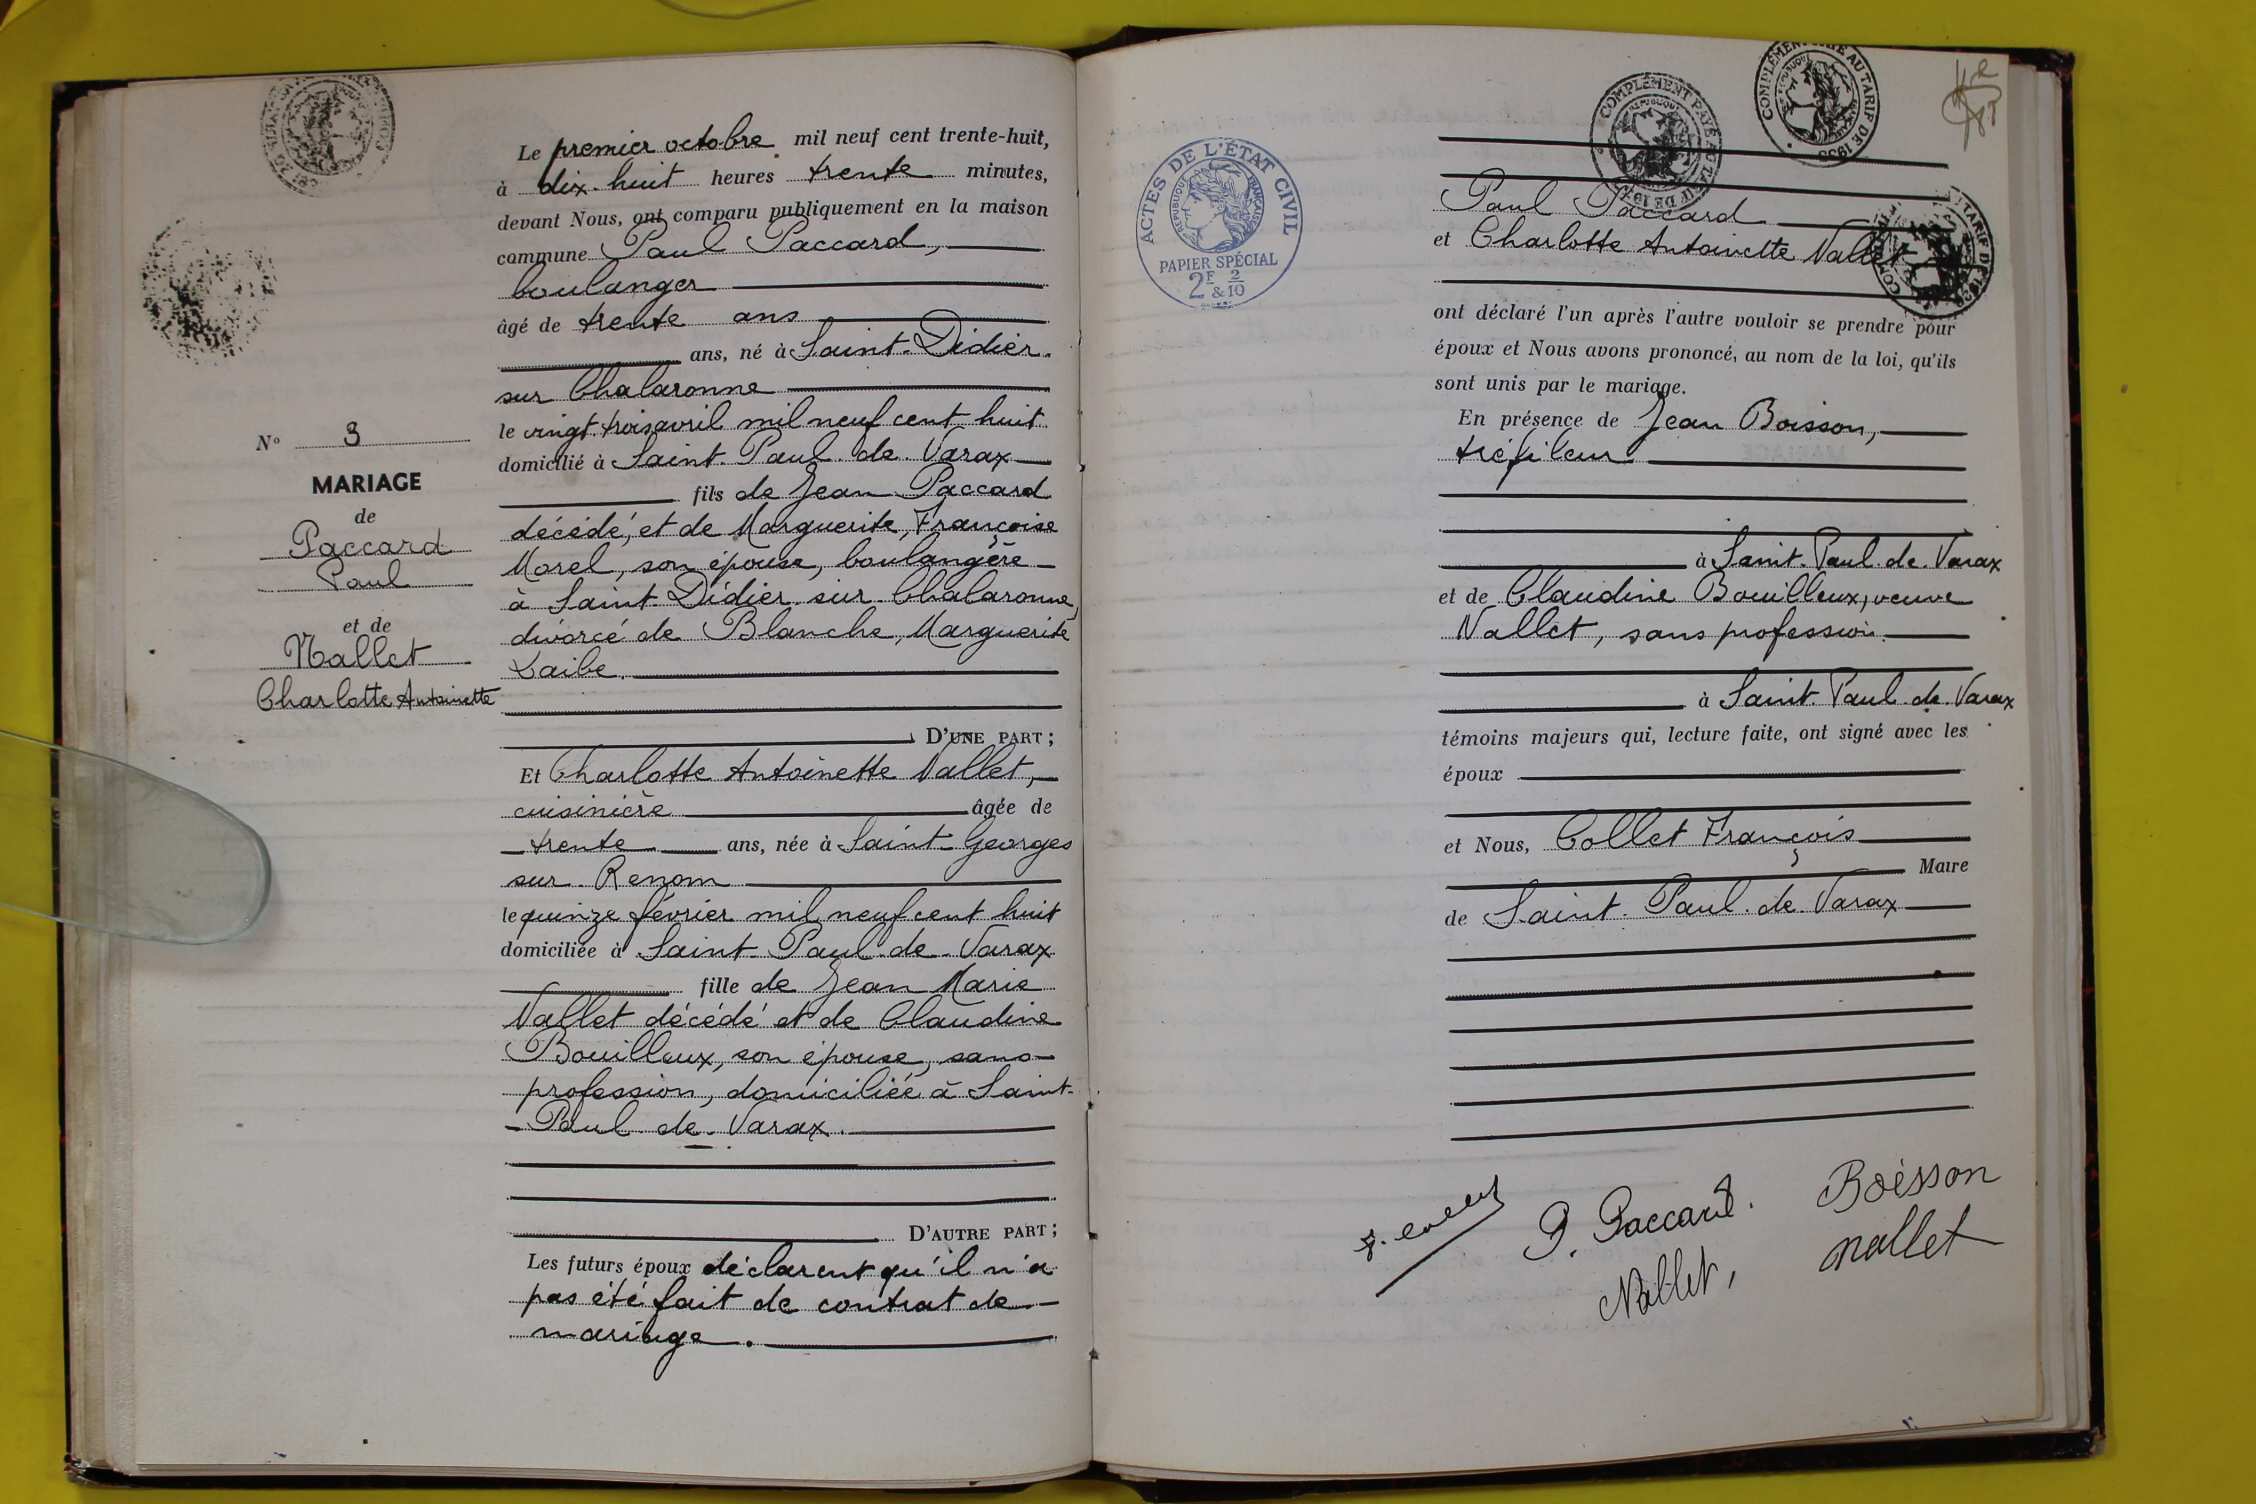 Le premier octobre mil neuf cent trente-huit,
à dix-huit heures trente minutes,
devant Nous, ont comparu publiquement en la maison
commune Paul Paccard,
boulanger
âgé de trente ans
ans, né à Saint-Didier-
sur Chalaronne
le vingt-trois avril mil neuf cent huit
domicilié à Saint-Paul-de-Varax
fils de Jean Paccard
décédé, et de Marguerite, Françoise
Morel, son épouse, boulangère
à Saint-Didier-sur-Chalaronne,
divorcé de Blanche, Marguerite
Laibe.
D'UNE PART;
Et Charlotte Antoinette Nallet,
cuisinière âgée de
trente ans, née à Saint-Georges
sur-Renom
le quinze février mil neuf cent huit
domiciliée à Saint-Paul-de-Varax
fille de Jean Marie
Nallet décédé et de Claudine
Bouilleux, son épouse, sans
profession, domiciliée à Saint-
Paul-de-Varax.
D'AUTRE PART;
Les futurs époux déclarent qu'il n'a
pas été fait de contrat de
mariage.
N° 9
MARIAGE
de
Paccard
Paul
et de
Nallet
Charlotte Antoinette
ACTES DE L'ÉTAT CIVIL
RÉPUBLIQUE FRANÇAISE
PAPIER SPÉCIAL
2F 2
& 10
COMPLÉMENT PAYÉ AU TARIF DE
COMPLÉMENT AU TARIF DE
TARIF DE
Paul Paccard
et Charlotte Antoinette Nallet
ont déclaré l'un après l'autre vouloir se prendre pour
époux et Nous avons prononcé, au nom de la loi, qu'ils
sont unis par le mariage.
En présence de Jean Boisson,
tréfileur
à Saint-Paul-de-Varax
et de Claudine Bouilleux, veuve
Nallet, sans profession.
à Saint-Paul-de-Varax
témoins majeurs qui, lecture faite, ont signé avec les
époux
et Nous, Collet François
Maire
de Saint-Paul-de-Varax
F. Collet
P. Paccard.
Boisson
Nallet,
Nallet